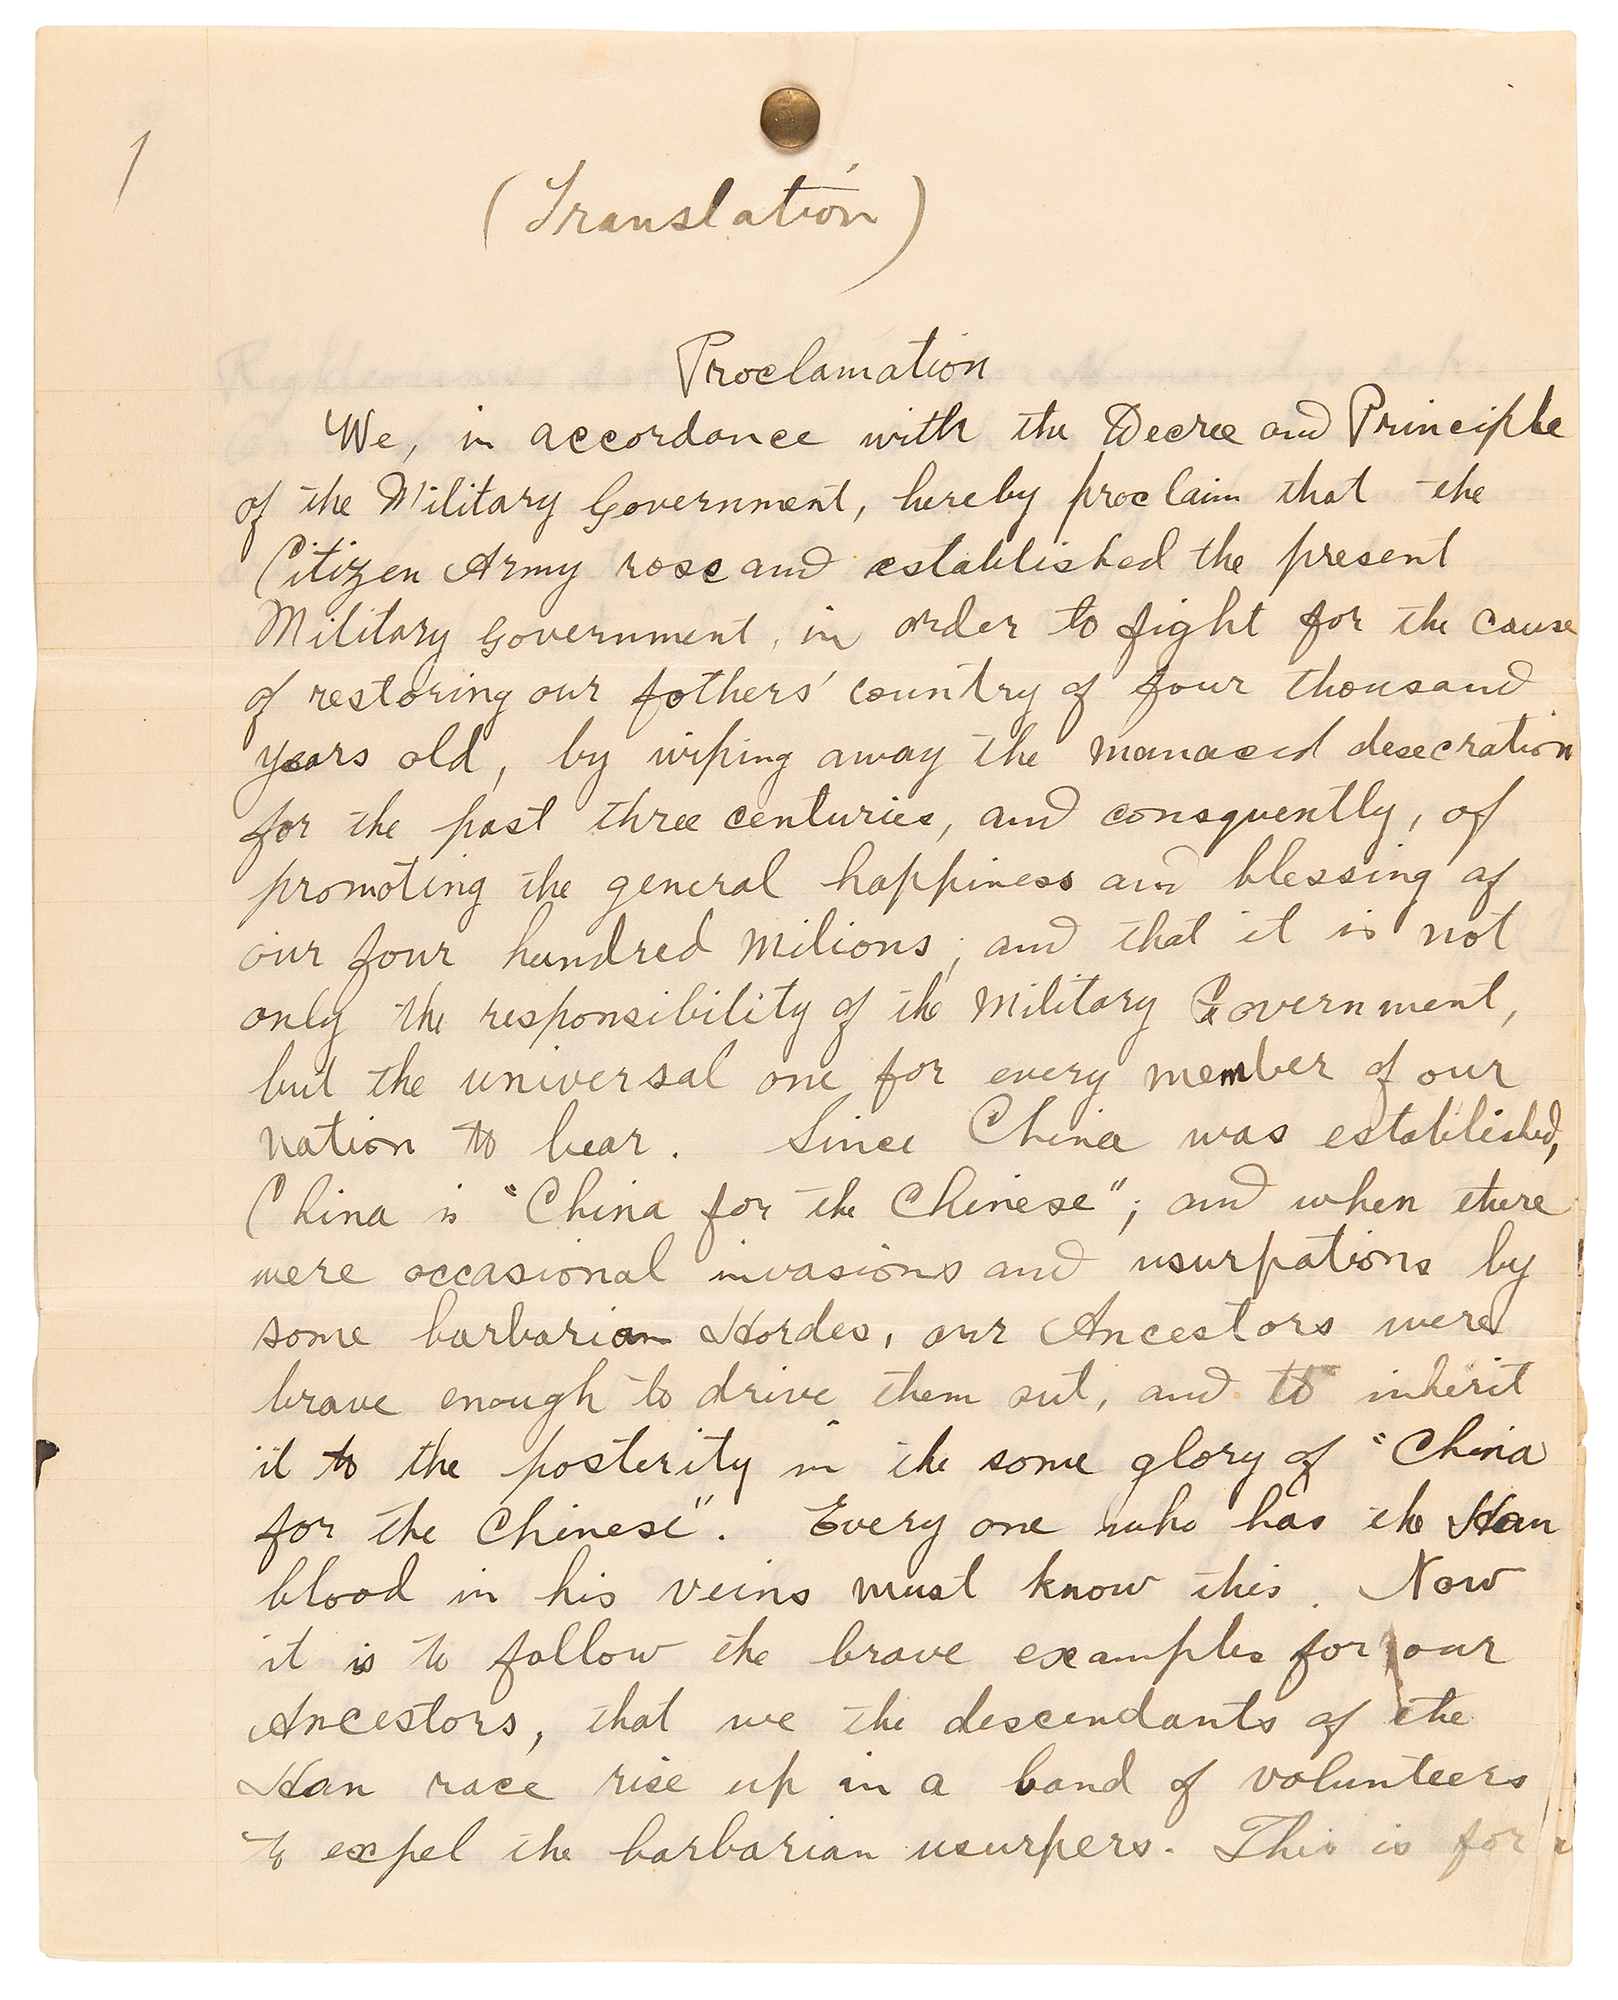 1
(Translation)
Proclamation
We, in accordance with the Decree and Principle
of the Military Government, hereby proclaim that the
Citizen Army rose and established the present
Military Government, in order to fight for the cause
of restoring our fothers' country of four thousand
years old, by wiping away the manaced desecration
for the past three centuries, and consquently, of
promoting the general happiness and blessing of
our four hundred milions; and that it is not
only the responsibility of the Military Government,
but the universal one for every member of our
nation to bear. Since China was established,
China is "China for the Chinese"; and when there
were occasional invasions and usurpations by
some barbarian Hordes, our Ancestors were
brave enough to drive them out, and to inherit
it to the posterity in the same glory of "China
for the Chinese". Every one who has the Han
blood in his veins must know this. Now
it is to follow the brave examples for our
Ancestors, that we the descendants of the
Han race rise up in a band of volunteers
to expel the barbarian usurpers. This is for